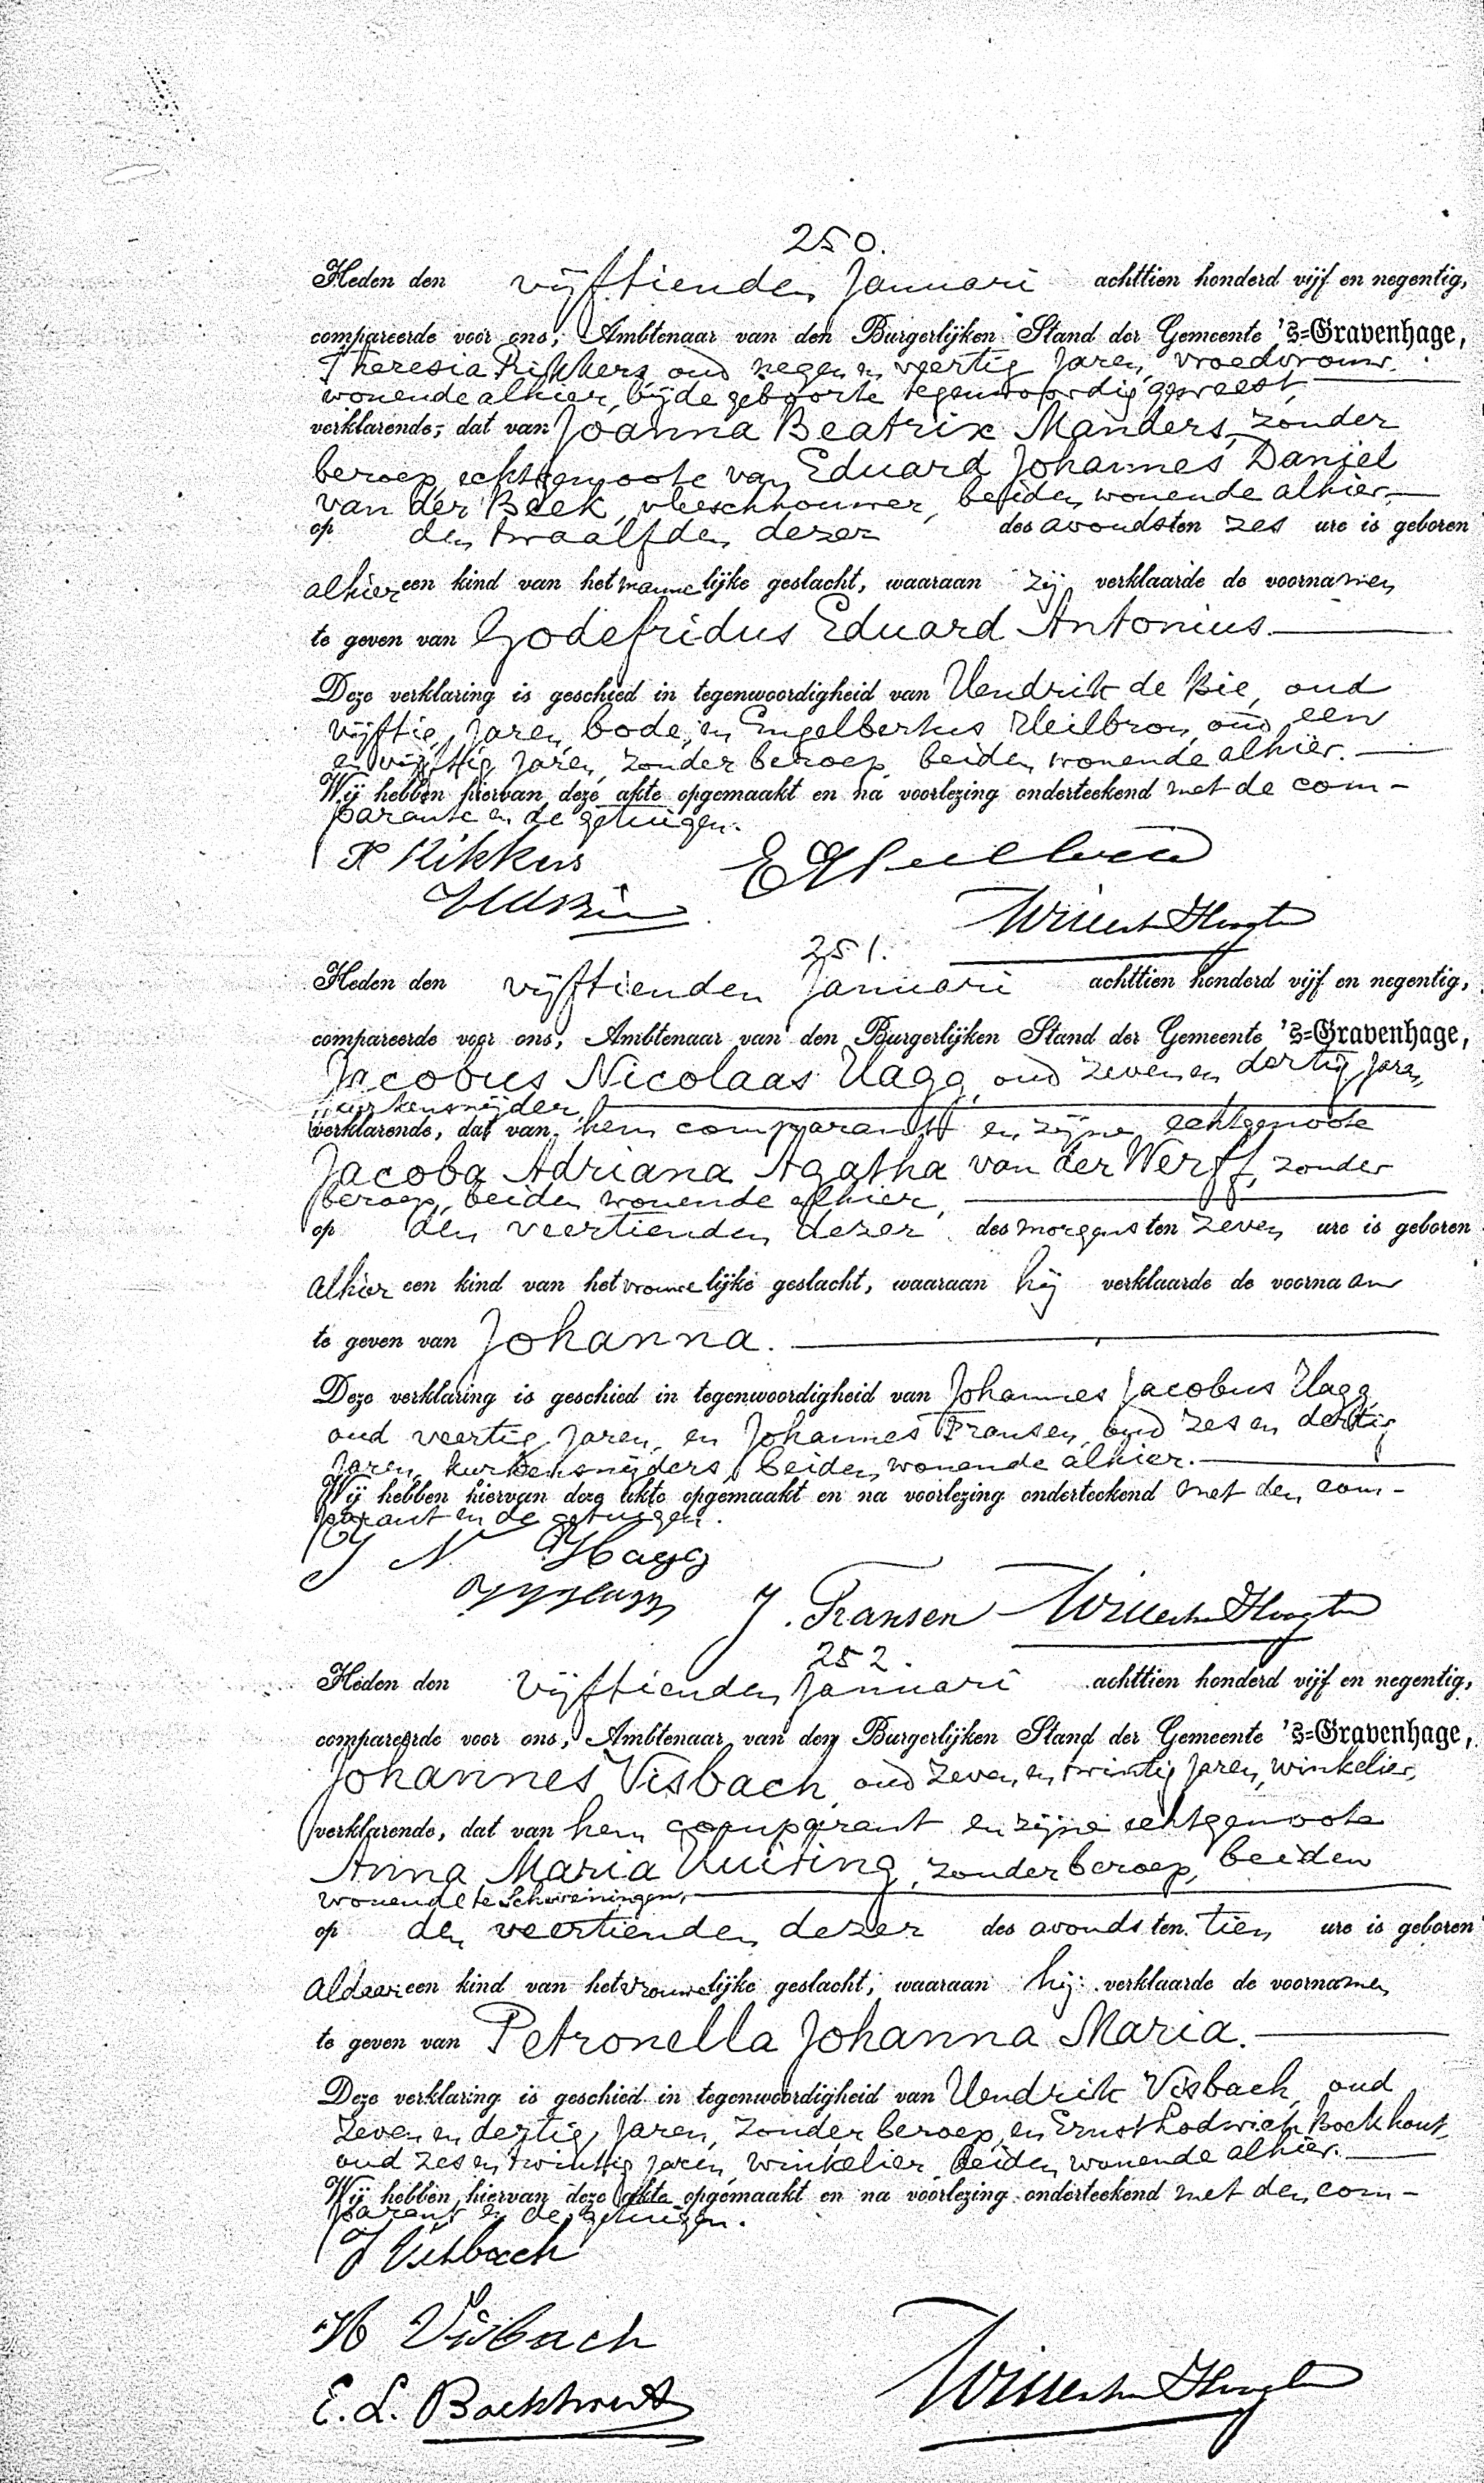 250.
Heden den vijftienden Januari achttien honderd vijf en negentig,
compareerde voor ons, Ambtenaar van den Burgerlijken Stand der Gemeente 's-Gravenhage,
Theresia Rikkers, oud negen en veertig jaren, vroedvrouw,
wonende alhier, bij de geboorte tegenwoordig geweest,
verklarende, dat van Joanna Beatrix Manders, zonder
beroep, echtgenoote van Eduard Johannes Daniel
van der Beek, vleeschhouwer, beiden wonende alhier,
op den twaalfden dezer des avonds ten zes ure is geboren
alhier een kind van het mannelijke geslacht, waaraan zij verklaarde de voornamen
te geven van Godefridus Eduard Antonius.
Deze verklaring is geschied in tegenwoordigheid van Hendrik de Bie, oud
vijftig jaren, bode, en Engelbertus Heilbron, oud een
en vijftig jaren, zonder beroep, beiden wonende alhier.
Wij hebben hiervan deze akte opgemaakt en na voorlezing onderteekend met de com-
parante en de getuigen.
Rikkers
251.
Heden den vijftienden Januari achttien honderd vijf en negentig,
compareerde voor ons, Ambtenaar van den Burgerlijken Stand der Gemeente 's-Gravenhage,
Jacobus Nicolaas Hagg, oud zeven en dertig jaren,
kurkensnijder,
verklarende, dat van hem comparant en zijne echtgenoote
Jacoba Adriana Agatha van der Werff, zonder
beroep, beiden wonende alhier,
op den veertienden dezer des morgens ten zeven ure is geboren
alhier een kind van het vrouwelijke geslacht, waaraan hij verklaarde de voornaam
te geven van Johanna.
Deze verklaring is geschied in tegenwoordigheid van Johannes Jacobus Hagg,
oud veertig jaren, en Johannes Fransen, oud zes en dertig
jaren, kurkensnijders, beiden wonende alhier.
Wij hebben hiervan deze akte opgemaakt en na voorlezing onderteekend met den com-
parant en de getuigen.
J N Hagg
J. Fransen
252.
Heden den vijftienden Januari achttien honderd vijf en negentig,
compareerde voor ons, Ambtenaar van den Burgerlijken Stand der Gemeente 's-Gravenhage,
Johannes Visbach, oud zeven en twintig jaren, winkelier,
verklarende, dat van hem comparant en zijne echtgenoote
Anna Maria Huising, zonder beroep, beiden
wonende te Scheveningen,
op den veertienden dezer des avonds ten tien ure is geboren
aldaar een kind van het vrouwelijke geslacht, waaraan hij verklaarde de voornamen
te geven van Petronella Johanna Maria.
Deze verklaring is geschied in tegenwoordigheid van Hendrik Visbach, oud
zeven en dertig jaren, zonder beroep, en Ernst Lodwich Boekhout,
oud zes en twintig jaren, winkelier, beiden wonende alhier.
Wij hebben hiervan deze akte opgemaakt en na voorlezing onderteekend met den com-
parant en de getuigen.
J Visbach
H Visbach
E. L. Boekhout